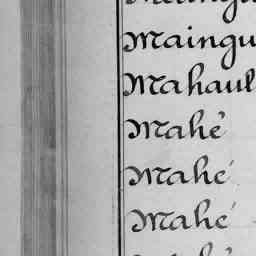 Maingu
Mahaul
Mahé
Mahé
Mahé